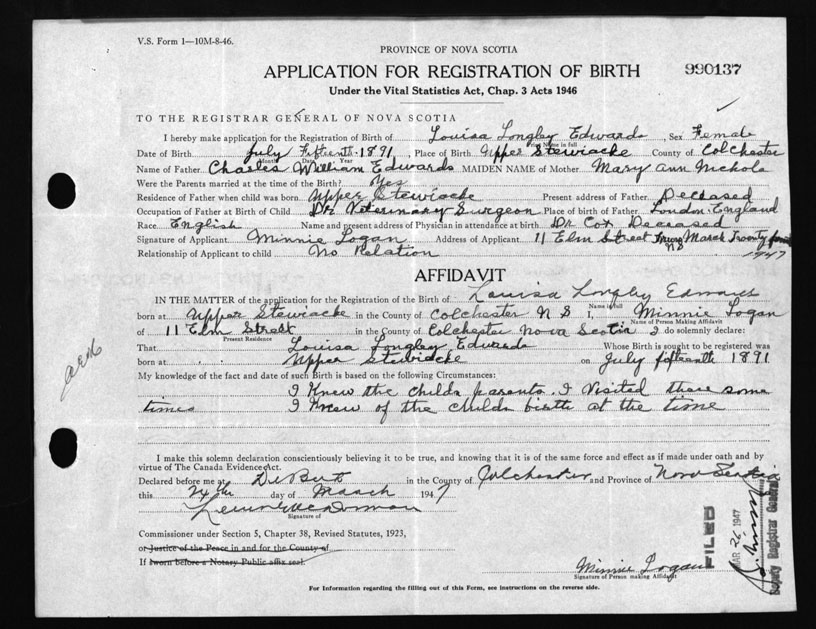 V.S. Form 1—10M-8-46.
PROVINCE OF NOVA SCOTIA
APPLICATION FOR REGISTRATION OF BIRTH 990137
Under the Vital Statistics Act, Chap. 3 Acts 1946
TO THE REGISTRAR GENERAL OF NOVA SCOTIA
I hereby make application for the Registration of Birth of Louisa Longley Edwards, Sex Female
Name in full
Date of Birth July Fifteenth 1891, Place of Birth Upper Stewiacke County of Colchester
Month Date Year
Name of Father Charles William Edwards MAIDEN NAME of Mother Mary Ann Nichols
Were the Parents married at the time of the Birth? Yes
Residence of Father when child was born Upper Stewiacke Present address of Father Deceased
Occupation of Father at Birth of Child Dr Veterinary Surgeon Place of birth of Father London, England
Race English Name and present address of Physician in attendance at birth Dr Cox Deceased
Signature of Applicant Minnie Logan Address of Applicant 11 Elm Street Truro March Twenty
NS 1947
Relationship of Applicant to child No Relation
AFFIDAVIT
IN THE MATTER of the application for the Registration of the Birth of Louisa Longley Edwards
Name in full
born at Upper Stewiacke in the County of Colchester N S I, Minnie Logan
Name of Person Making Affidavit
of 11 Elm Street in the County of Colchester Nova Scotia do solemnly declare:
Present Residence
That Louisa Longley Edwards Whose Birth is sought to be registered was
born at Upper Steiwiacke on July fifteenth 1891
My knowledge of the fact and date of such Birth is based on the following Circumstances:
I Knew the childs parents. I Visited there some
times I Knew of the childs birth at the time
I make this solemn declaration conscientiously believing it to be true, and knowing that it is of the same force and effect as if made under oath and by
virtue of The Canada Evidence Act.
Declared before me at DeBert in the County of Colchester and Province of Nova Scotia
this 24th day of March 1947
Signature of
Commissioner under Section 5, Chapter 38, Revised Statutes, 1923,
or Justice of the Peace in and for the County of
If sworn before a Notary Public affix seal.
Minnie Logan
Signature of Person making Affidavit
FILED
MAR 26 1947
Deputy Registrar General
For Information regarding the filling out of this Form, see instructions on the reverse side.